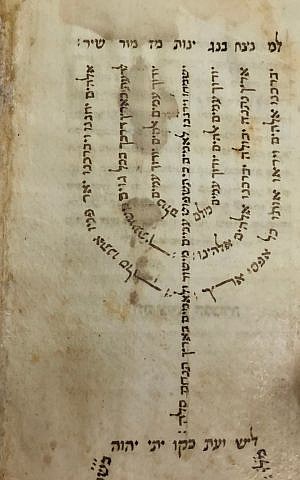 למ נצח בנג ינות מז מור שיר:
אלהים יחננו ויברכנו יאר פניו אתנו סלה
לדעת בארץ דרכך בכל גוים ישועתך
יודוך עמים אלהים יודוך עמים כלם
ישמחו וירננו לאמים כי תשפוט עמים מישור ולאמים בארץ תנחם סלה:
יודוך עמים אלהים יודוך עמים כלם
ארץ נתנה יבולה יברכנו אלהים אלהינו:
יברכנו אלהים וייראו אותו כל אפסי ארץ
ליש ועת כקו יתי יהוה